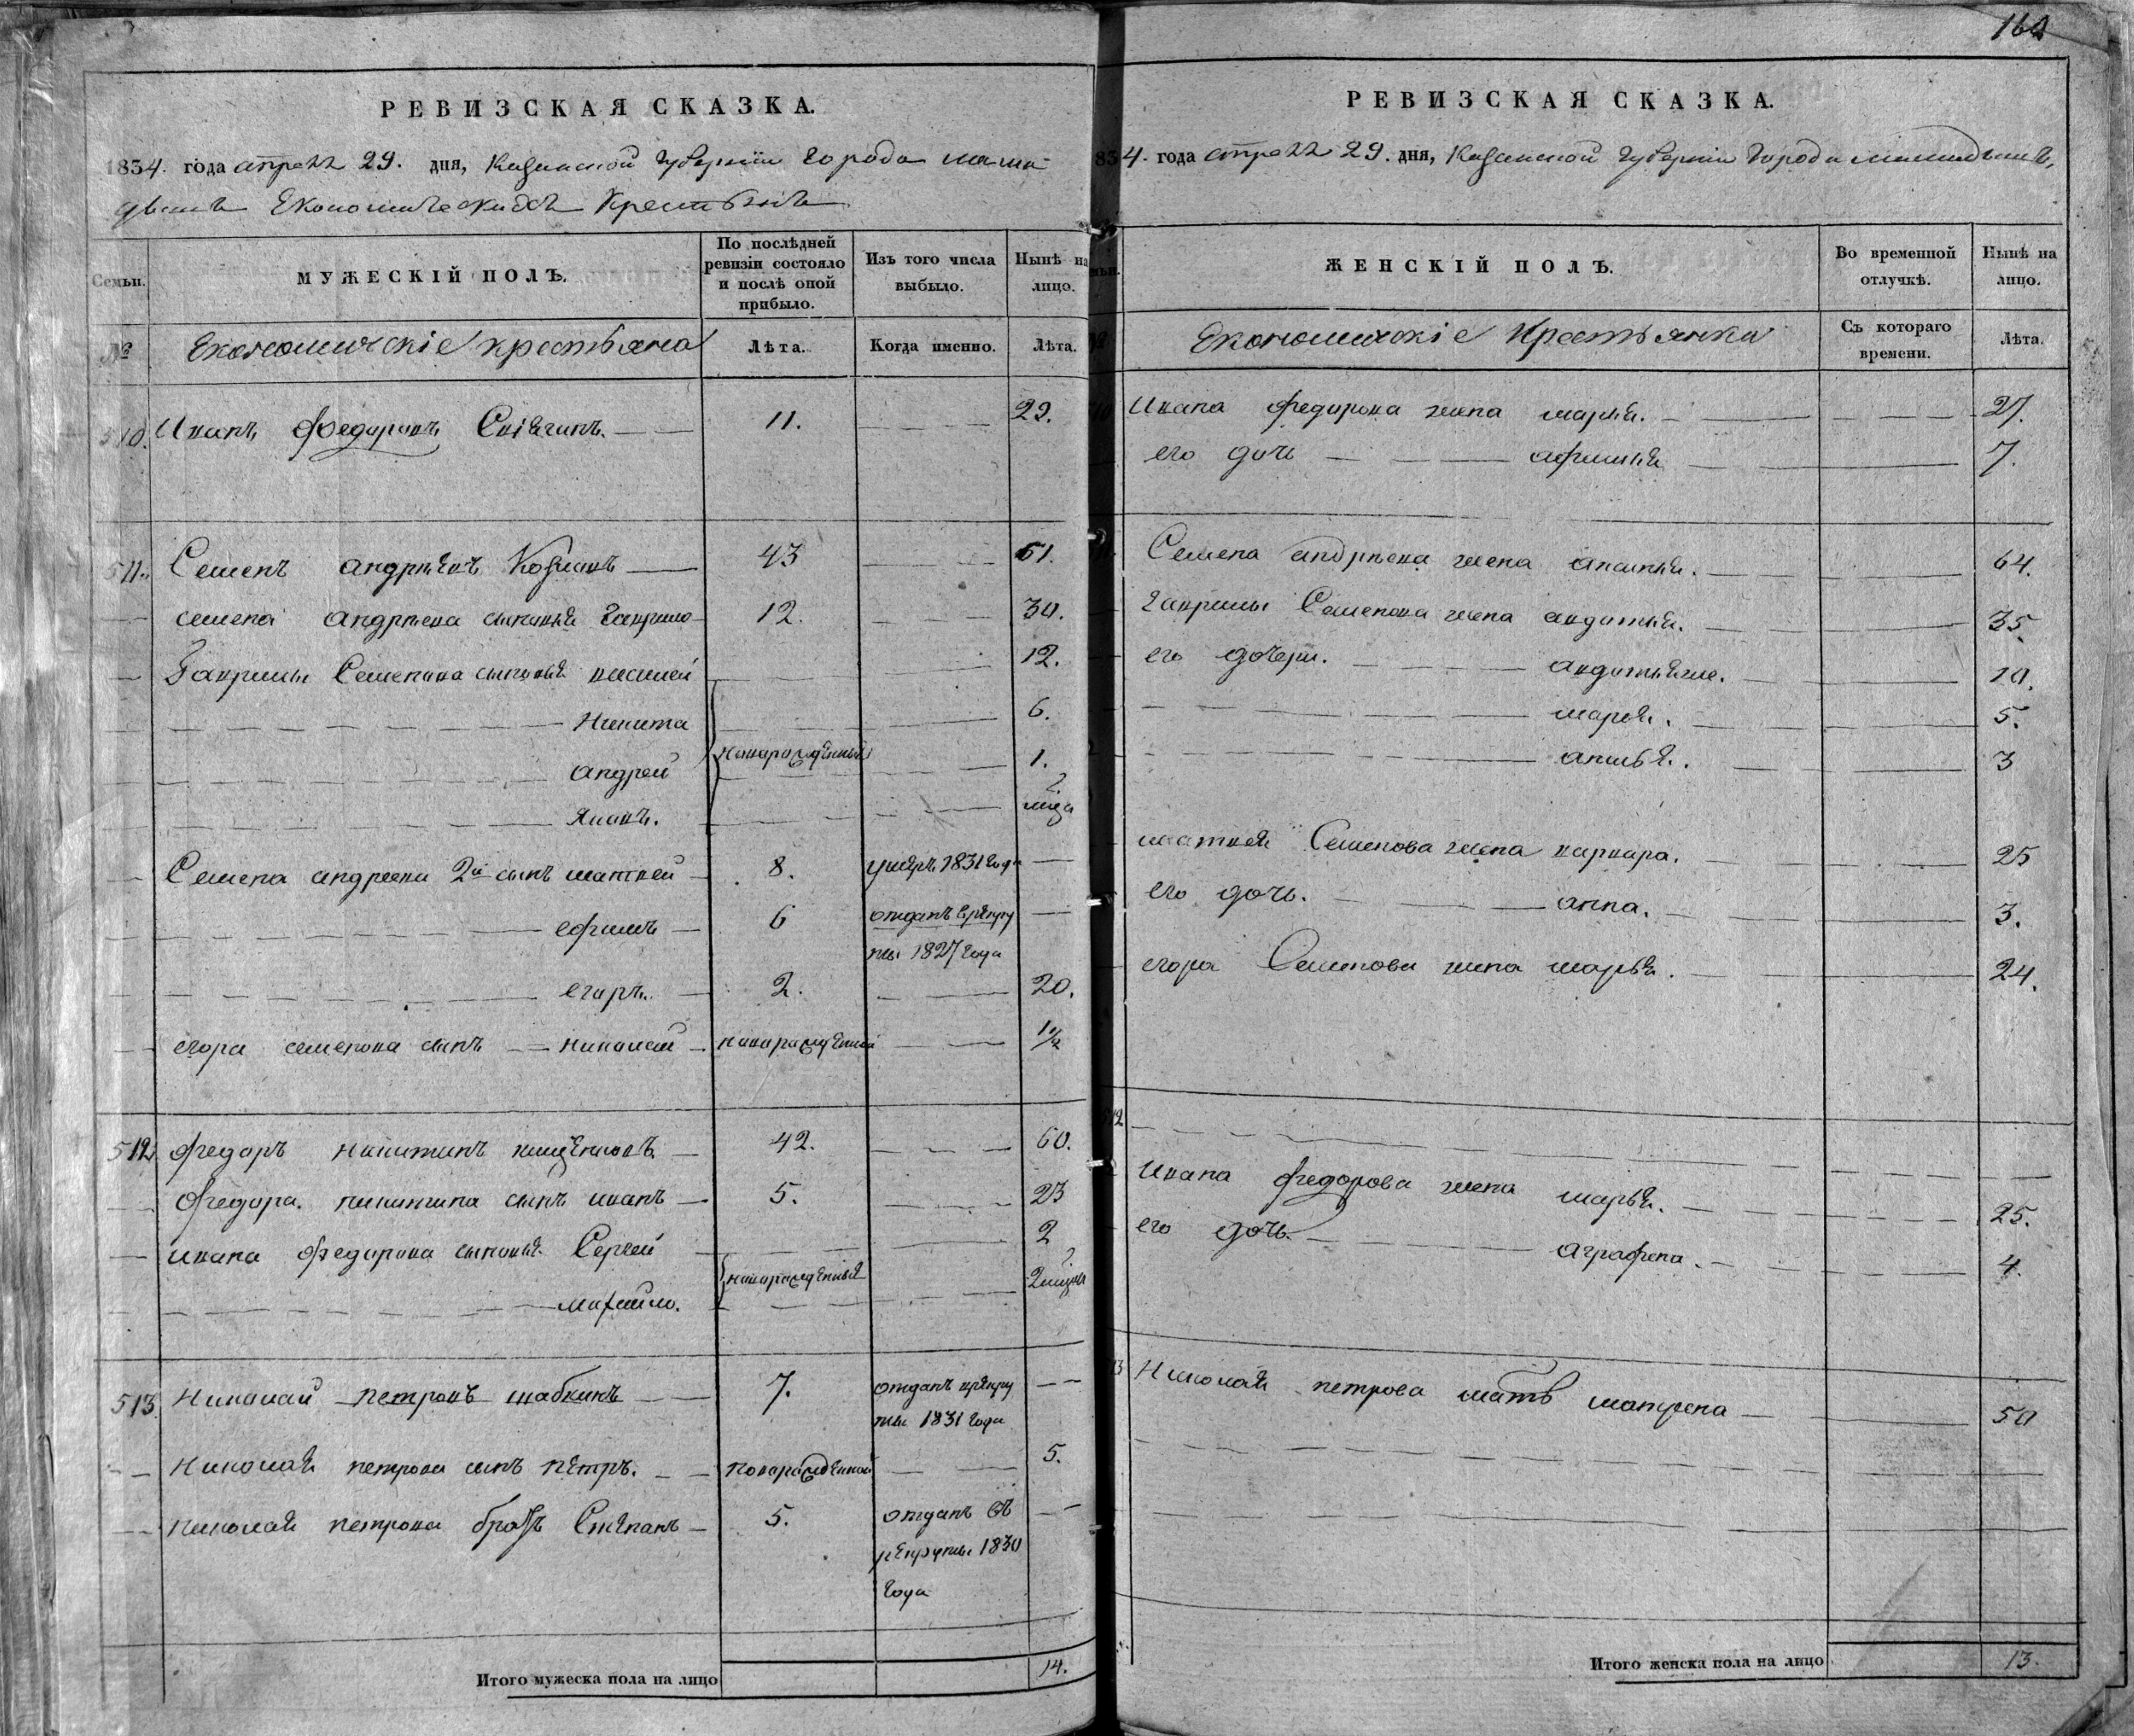 162
РЕВИЗСКАЯ СКАЗКА.
1834. года апреля 29. дня, Казанской Губернии Города мама-
дыша Економическихъ Крестьянъ
Семьи.
МУЖЕСКІЙ ПОЛЪ.
По послѣдней ревизіи состояло и послѣ оной прибыло.
Изъ того числа выбыло.
Нынѣ на лицо.
№
Економическіе крестьяна
Лѣта.
Когда именно.
Лѣта.
510. Иванъ Федоровъ 11. 29.
511. Семенъ андрѣевъ 43 61.
семена андрѣева сыновья Гаврило 12. 30.
Гаврилы Семенова сыновья василей 12.
Никита 6.
андрей новорожденныя 1.
Яковъ. 2 мҍца
Семена андреева 2й сынъ матвей 8. умеръ 1831 Года
ефимъ 6 отданъ в рекру
ты 1827 Года
егоръ. 2. 20.
егора семенова сынъ николай новорожденной 1 1/2
512. Федоръ никитинъ 42. 60.
Федора. никитина сынъ иванъ 5. 23
ивана Федорова сыновья Сергей 2
новорожденныя
михайло. 2 мҍца
513. Николай петровъ шабкинъ 7. отданъ врекру
ты 1831 Года
Николая петрова сынъ петръ. новорожденной 5.
николая петрова братъ Степанъ 5. отданъ въ
рекруты 1830
Года
Итого мужеска пола на лицо 14.
РЕВИЗСКАЯ СКАЗКА.
834. года апреля 29. дня, Казанской Губернии Города мамадыша,
ЖЕНСКІЙ ПОЛЪ.
Во временной отлучкѣ.
Нынѣ на лицо.
Економическіе Крестьянки
Съ котораго времени.
Лѣта.
Ивана Федорова жена марья. 27.
его дочь афимья 7.
Семена андрѣева жена 64.
Гаврилы Семенова жена авдотья. 35.
его дочери. 10.
марья. 5.
3
матвея Семенова жена варвара. 25
его дочь. анна. 3.
егора Семенова жена марья. 24.
512
Ивана Федорова жена марья. 25.
его дочь. аграфена. 4.
13 Николая петрова мать матрена 50
Итого женска пола на лицо 13.